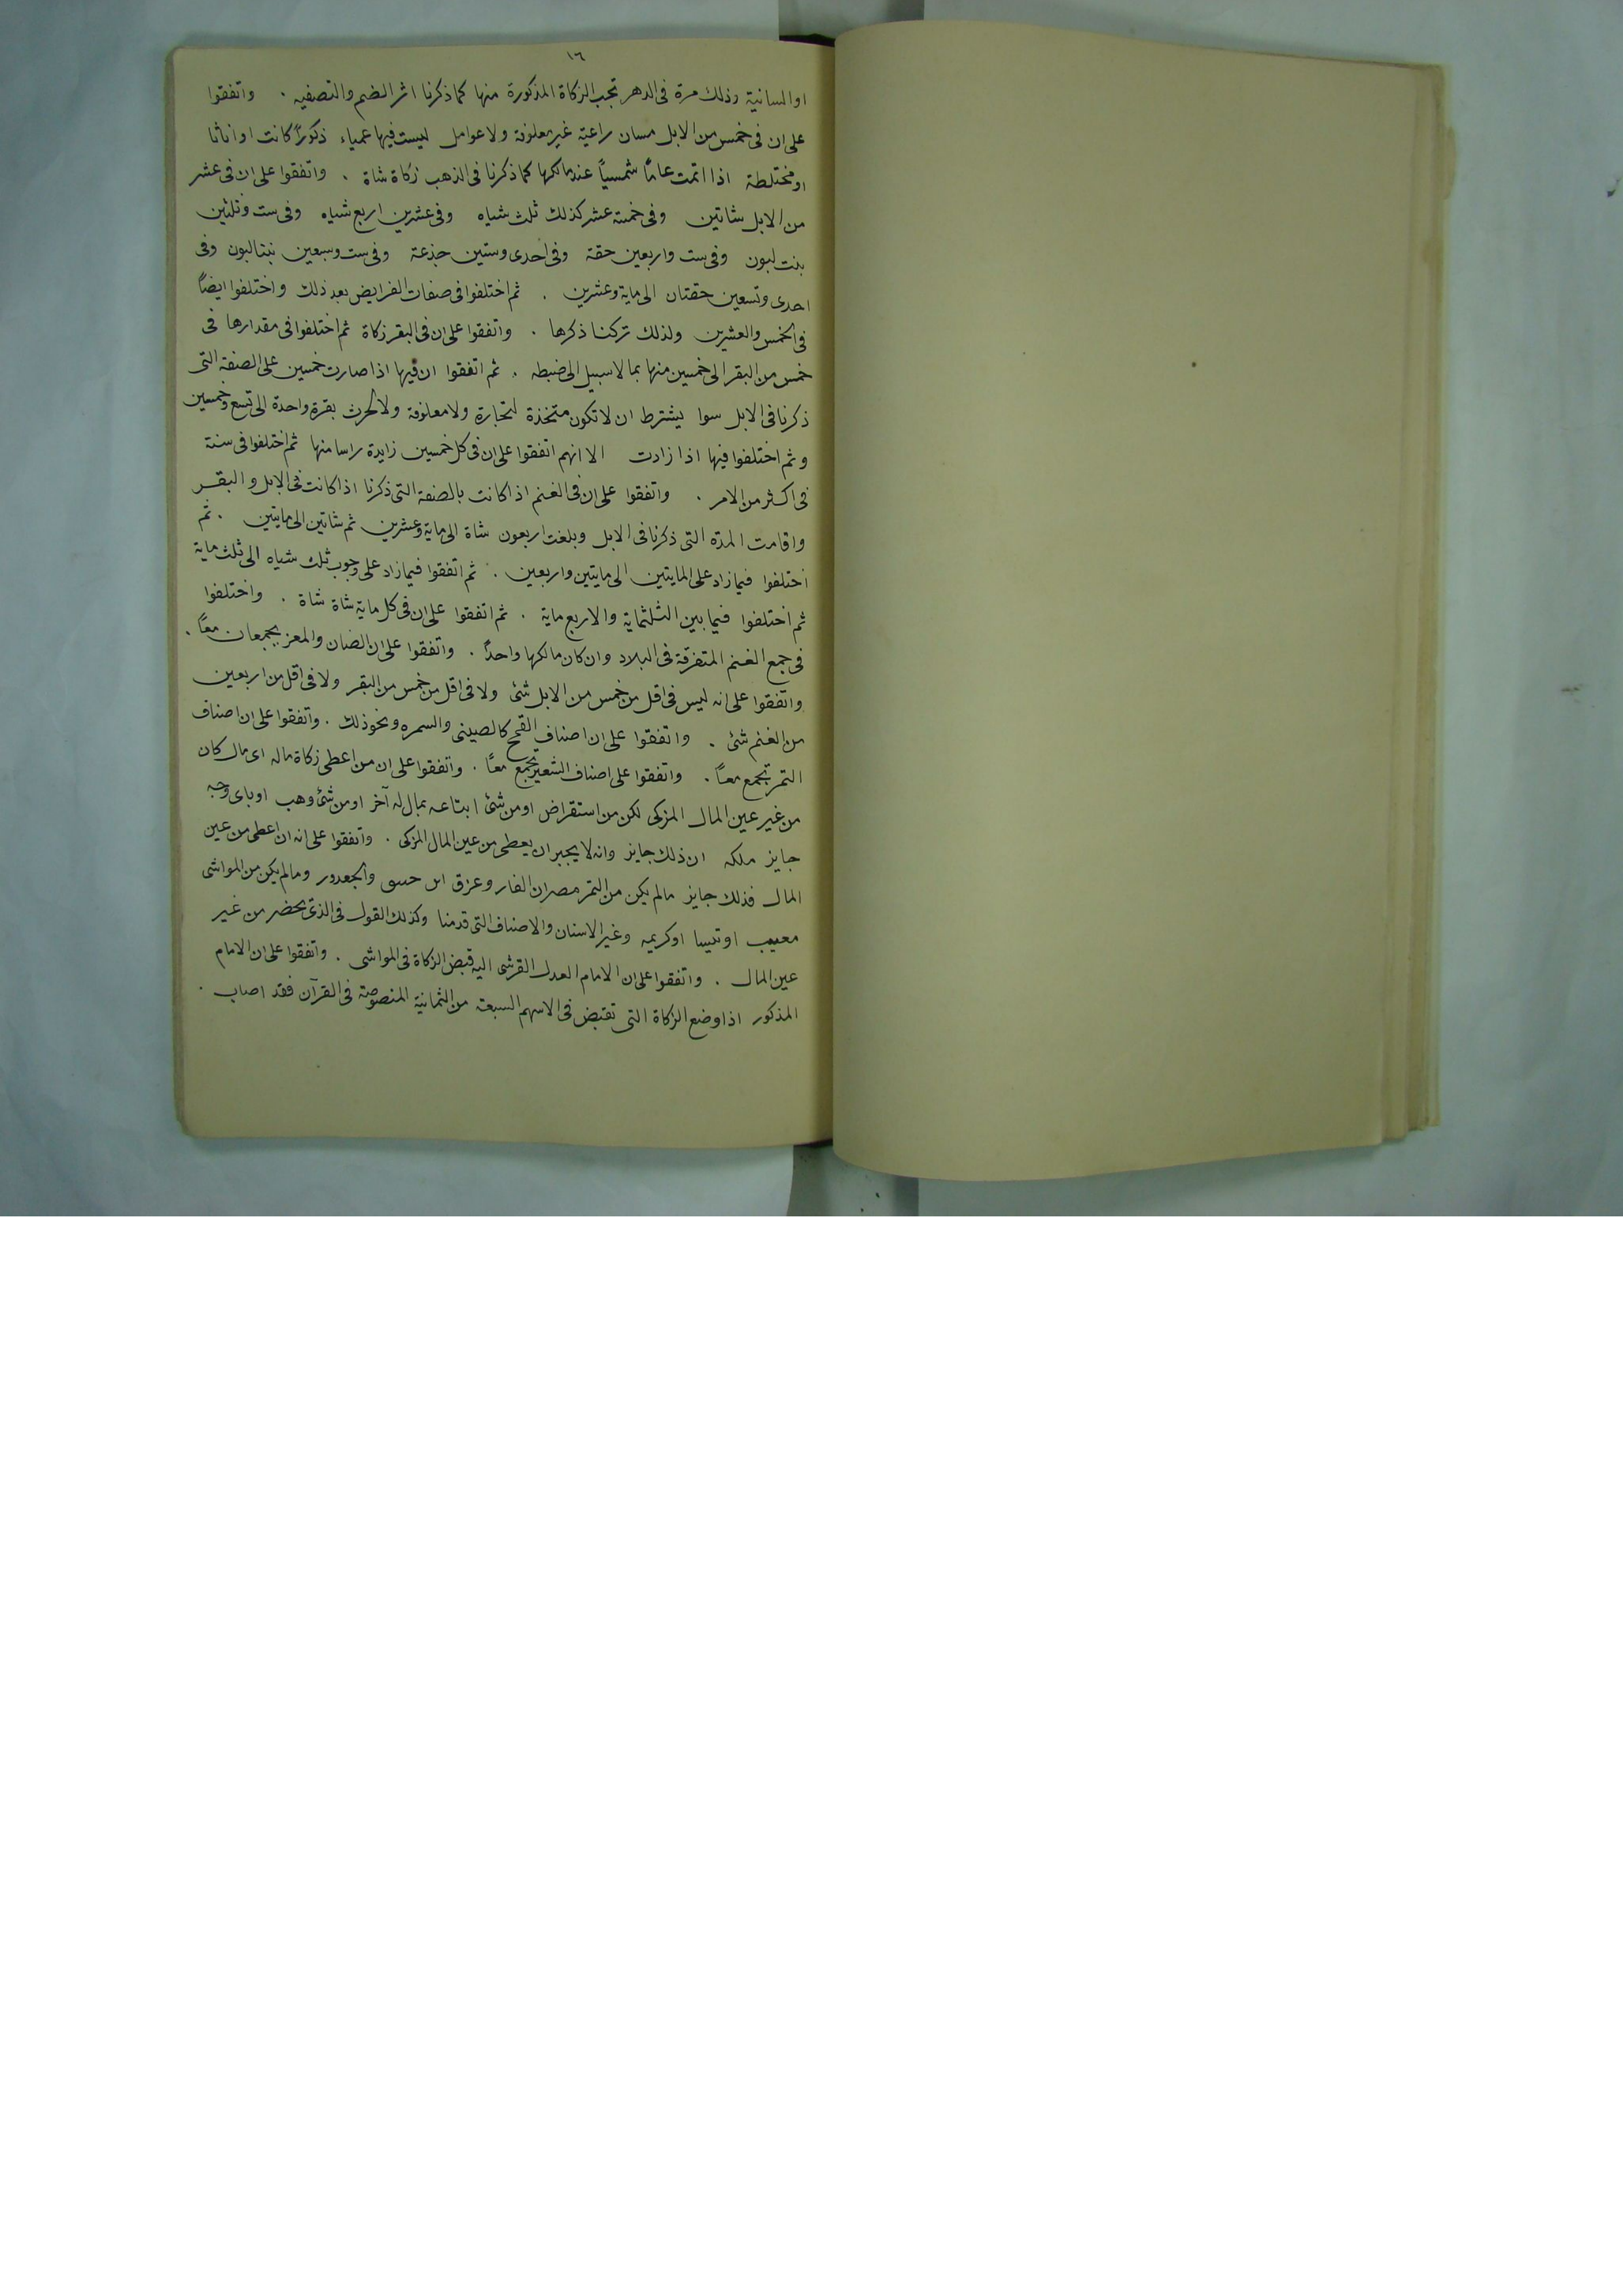 ١٦
او السانية وذلك مرة فى الدهر تجب الزكاة المذكورة منها كما ذكرنا اثر الضم والتصفيه . واتفقوا
على ان فى خمس من الابل مسان راعية غير معلوفة ولا عوامل ليست فيها عمياء ذكورًا كانت او اناثا
او مختلطة اذا اتمت عامًا شمسيًا عند مالكها كما ذكرنا فى الذهب زكاة شاة . واتفقوا على ان فى عشر
من الابل شاتين وفى خمسة عشر كذلك ثلث شياه وفى عشرين اربع شياه وفى ست وثلثين
بنت لبون وفى ست واربعين حقة وفى احدى وستين جذعة وفى ست وسبعين بنتا لبون وفى
احدى وتسعين حقتان الى ماية وعشرين . ثم اختلفوا فى صفات الفرايض بعد ذلك واختلفوا ايضًا
فى الخمس والعشرين ولذلك تركنا ذكرها . واتفقوا على ان فى البقر زكاة ثم اختلفوا فى مقدارها فى
خمس من البقر الى خمسين منها بما لا سبيل الى ضبطه . ثم اتفقوا ان فيها اذا صارت خمسين على الصفة التى
ذكرنا فى الابل سوا يشترط ان لا تكون متخذة لتجارة ولا معلوفة ولا لحرث بقرة واحدة الى تسع وخمسين
وثم اختلفوا فيها اذا زادت الا انهم اتفقوا على ان فى كل خمسين زايدة راسا منها ثم اختلفوا فى سنة
فى اكثر من الامر . واتفقوا على ان فى الغنم اذا كانت بالصفة التى ذكرنا اذا كانت فى الابل و البقر
واقامت المدة التى ذكرنا فى الابل وبلغت اربعون شاة الى ماية وعشرين ثم شاتين الى مايتين . ثم
اختلفوا فيما زاد على المايتين الى مايتين واربعين . ثم اتفقوا فيما زاد على وجوب ثلث شياه الى ثلث ماية
ثم اختلفوا فيما بين الثلثماية والاربع ماية . ثم اتفقوا على ان فى كل ماية شاة شاة . واختلفوا
فى جمع الغنم المتفرقة فى البلاد وان كان مالكها واحدًا . واتفقوا على ان الضان والمعز يجمعان معًا .
واتفقوا على انه ليس فى اقل من خمس من الابل شئ ولا فى اقل من خمس من البقر ولا فى اقل من اربعين
من الغنم شئ . واتفقوا على ان اصناف القمح كالصينى والسمره ونحو ذلك . واتفقوا على ان اصناف
التمر تجمع معًا . واتفقوا على اصناف الشعير تجمع معًا . واتفقوا على ان من اعطى زكاة ماله اى مال كان
من غير عين المال المزكى لكن من استقراض او من شئ ابتاعه بمال له آخر او من شئ وهب او باى وجه
جايز ملكه ان ذلك جايز وانه لا يجبر ان يعطى من عين المال المزكى . واتفقوا على انه ان اعطى من عين
المال فذلك جايز مالم يكن من التمر مصران الفار وعزق والجعدور ومالم يكن من المواشى
معيب او تيسا او كريمه وغير الاسنان والاصناف التى قدمنا وكذلك القول فى الذى يحضر من غير
عين المال . واتفقوا على ان الامام العدل القرشى اليه قبض الزكاة فى المواشى . واتفقوا على ان الامام
المذكور اذا وضع الزكاة التى تقبض فى الاسهم السبعة من الثمانية المنصوصة فى القرآن فقد اصاب .